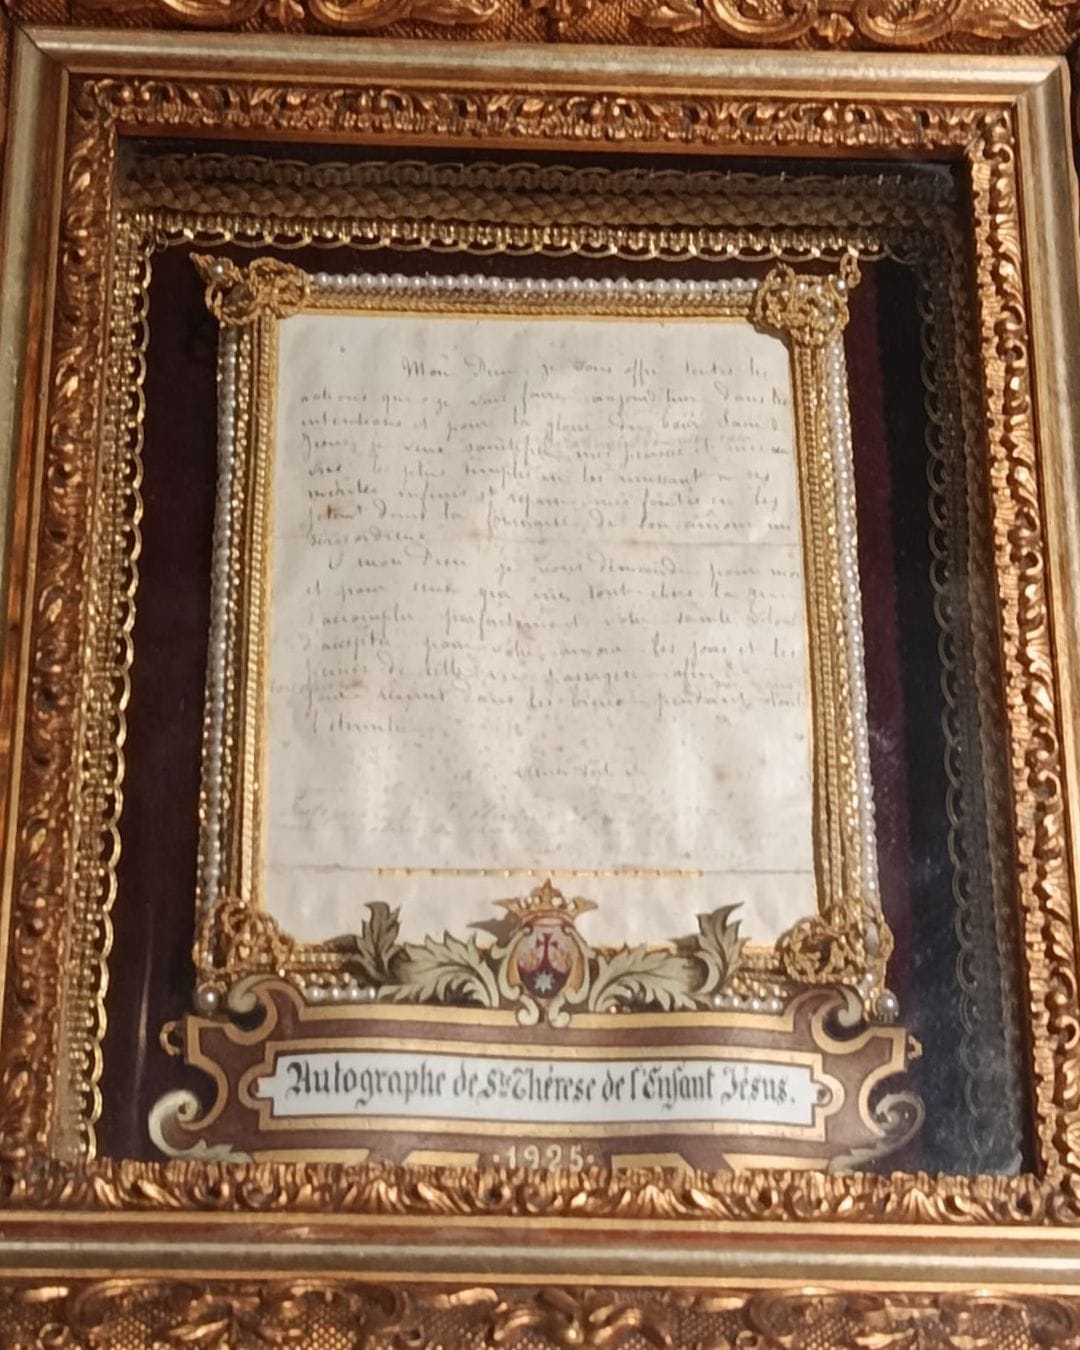 Mon Dieu, je vous offre toutes les
actions que je vais faire aujourd'hui dans les
intentions et pour la gloire du Cœur Sacré de
Jésus; je veux sanctifier
les plus simples en les unissant à ses
mérites infinis et réparer mes fautes en les
jetant dans la fournaise de son amour mi
séricordieux
O mon Dieu je vous demande pour moi
et pour ceux qui me sont chers la grâce
d'accomplir parfaitement votre sainte volonté
d'accepter pour votre amour les joies et les
peines de cette vie passagère afin
réunis dans les Cieux pendant toute
l'éternité
Ainsi soit-il
Autographe de Ste Thérèse de l'Enfant Jésus.
·1925·